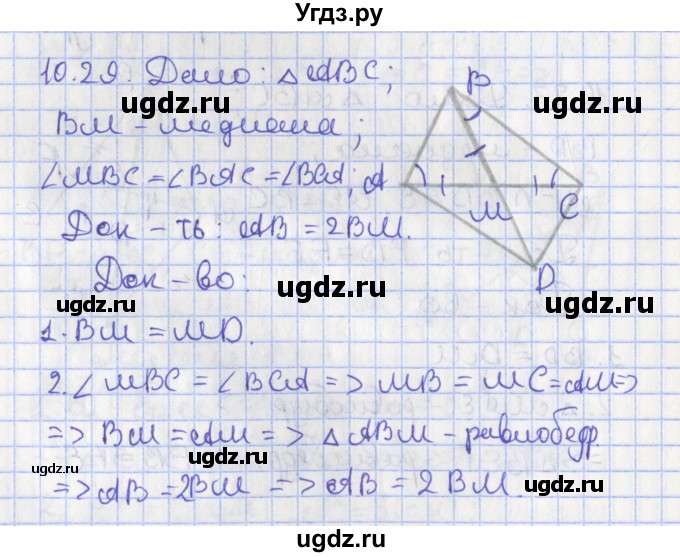 Угдз.ру
10.29. Дано: △ABC;
BM - медиана;
∠MBC = ∠BAC = ∠BCA;
Док-ть: AB = 2BM.
Док-во:
1. BM = MD.
2. ∠MBC = ∠BCA => MB = MC = AM =>
=> BM = AM => △ABM - равнобедр
=> AB = 2BM => AB = 2BM.
B
A
M
C
D
ugdz.ru
ugdz.ru
ugdz.ru
ugdz.ru
ugdz.ru
ugdz.ru
ugdz.ru
ugdz.ru
ugdz.ru